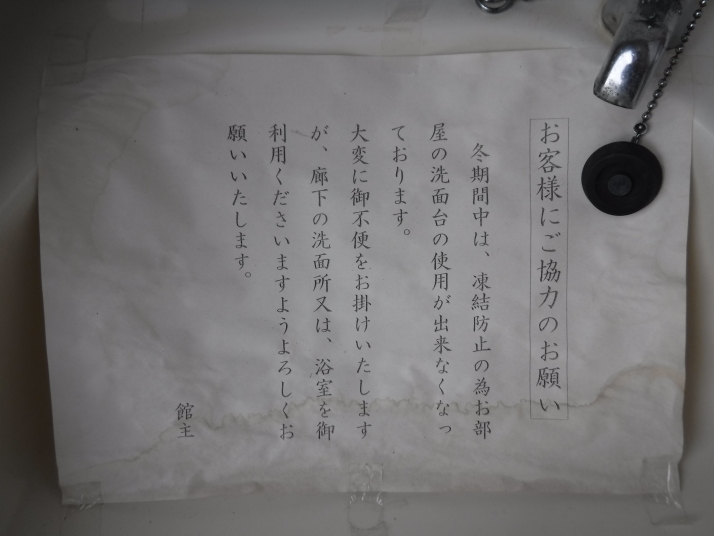 お客様にご協力のお願い
冬期間中は、凍結防止の為お部
屋の洗面台の使用が出来なくなっ
ております。
大変に御不便をお掛けいたします
が、廊下の洗面所又は、浴室を御
利用くださいますようよろしくお
願いいたします。
館主